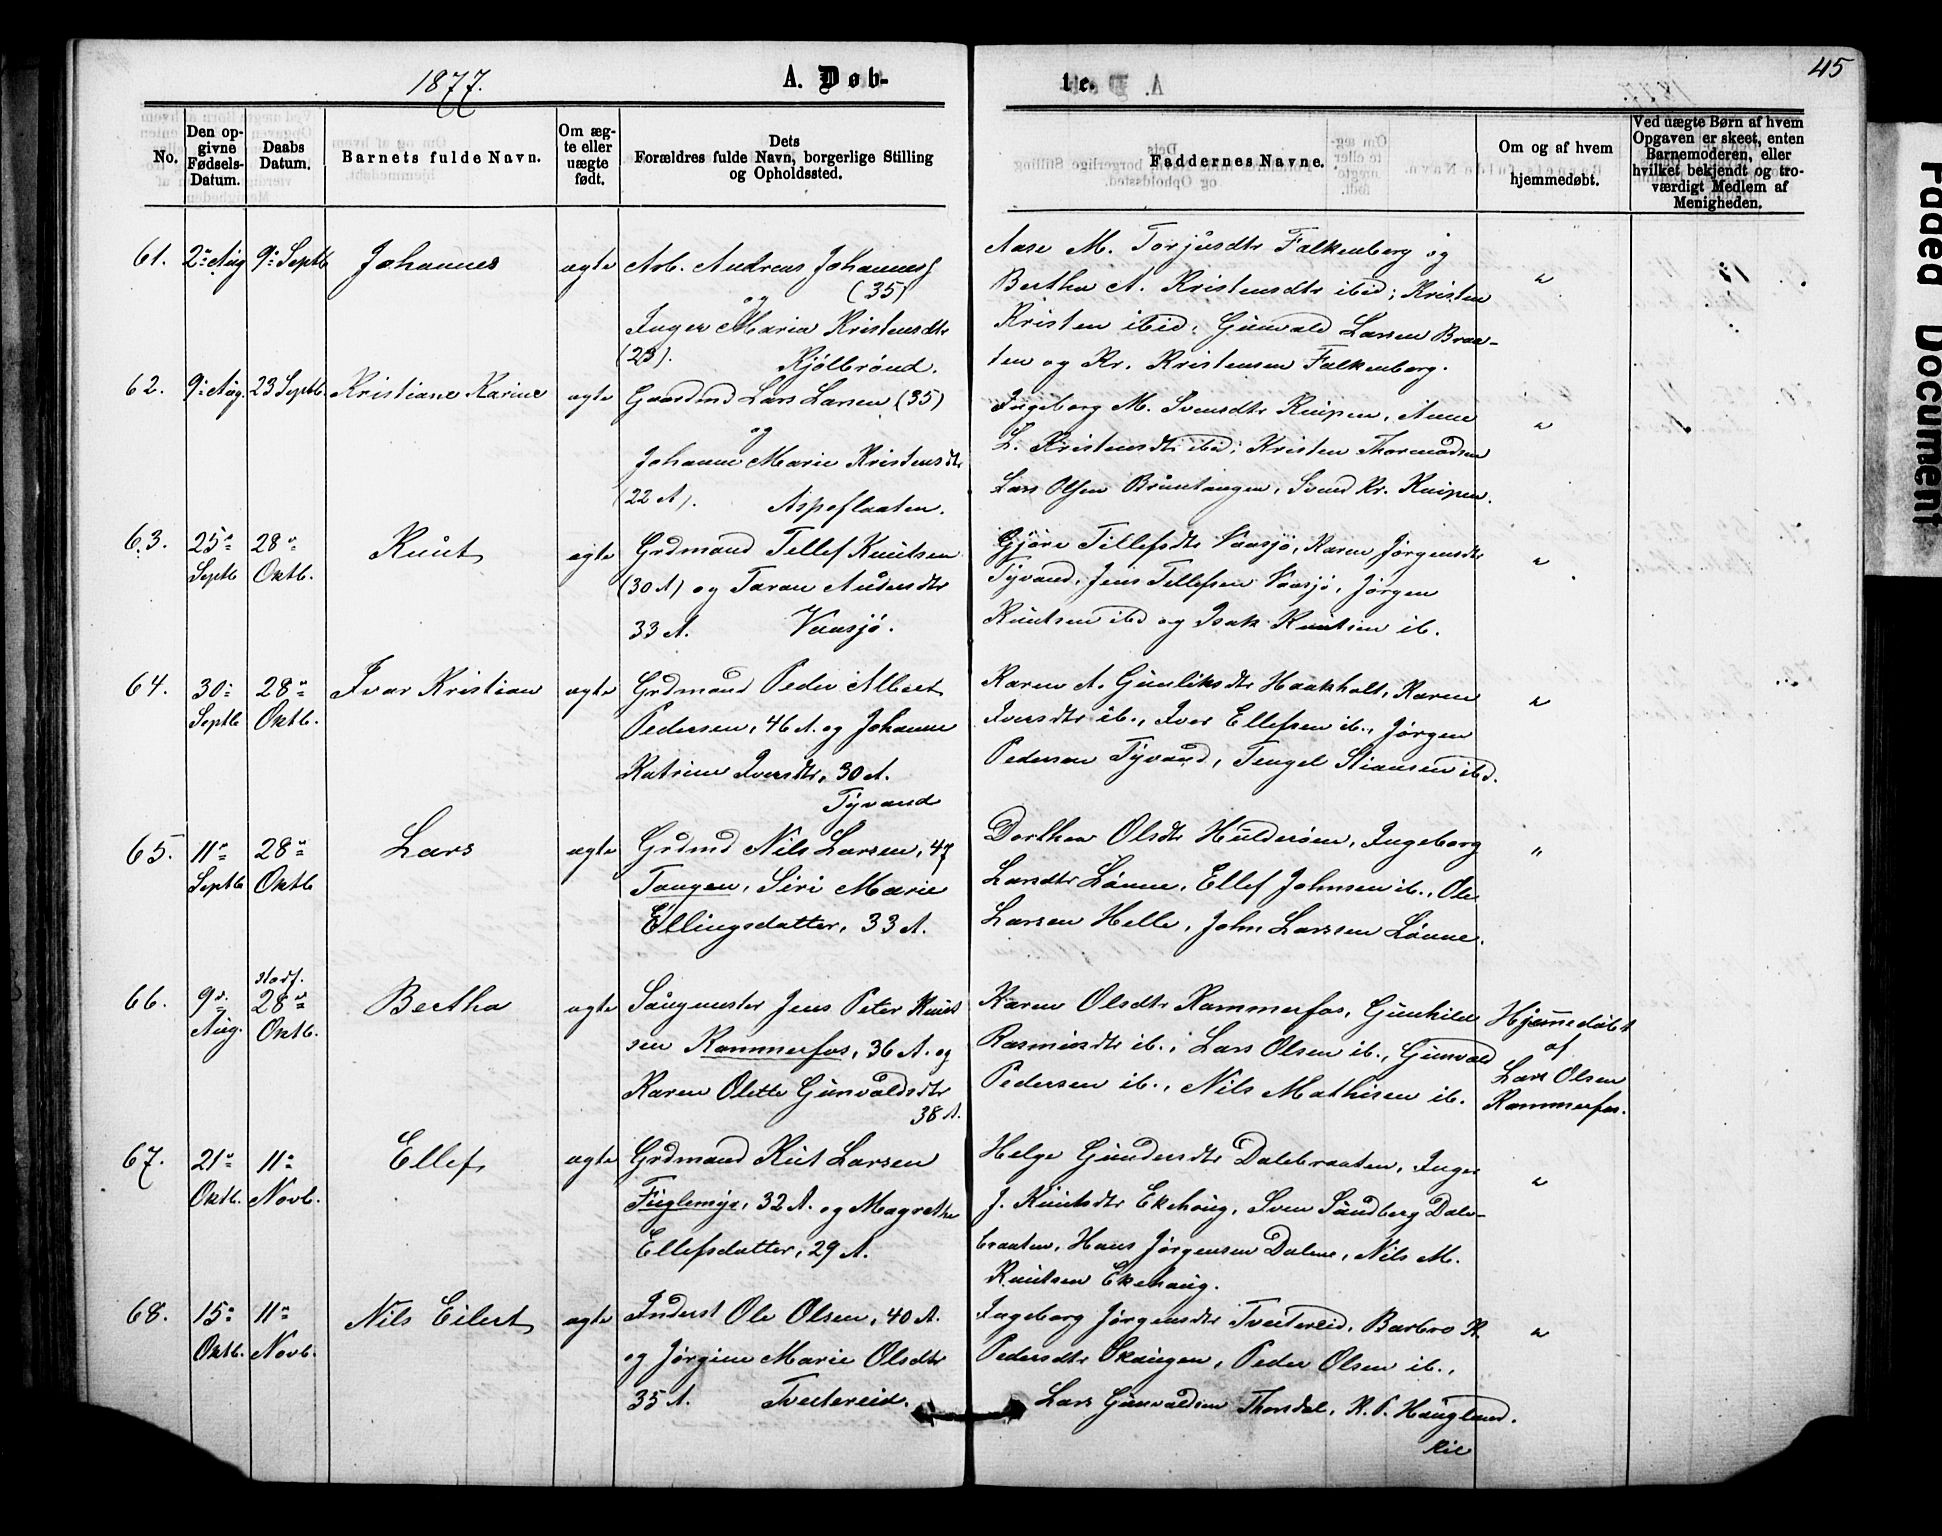 1877.
A. Døb-
te.
45
No.
Den op-
givne
Fødsels-
Datum.
Daabs
Datum.
Barnets fulde Navn.
Om æg-
te eller
uægte
født.
Dets
Forældres fulde Navn, borgerlige Stilling
og Opholdssted.
Faddernes Navne.
Om og af hvem
hjemmedøbt.
Ved uægte Børn af hvem
Opgaven er skeet, enten
Barnemoderen, eller
hvilket bekjendt og tro-
værdigt Medlem af
Menigheden.
61. 2 Aug 9 Septb Johannes ægte Arb. Andreas Johannes
(35)
og
Inger Maria Kristensdtr
(23). Kjølbrønd.
Aase M. Torjusdtr Falkenberg og
Bertha A. Kristensdtr ibid; Kristen
Kristen ibid; Gunvald Larsen Braa-
ten og Kr. Kristensen Falkenberg.
"
62. 9 Aug. 23 Septb. Kristiane Karine ægte Gaardmd Lars Larsen (35)
og
Johanne Marie Kristensdtr
(22 A). Aspeflaaten.
Ingeborg M. Svensdtr Knipen, Anne
L. Kristensdtr ibid; Kristen Thormodsen
Lars Olsen Bruntangen, Svend Kr. Knipen.
"
63. 25 Septb 28 Oktb. Knut ægte Grdmand Tellef Knutsen
(30 A) og Taran Andersdtr
33 A. Vaasjø.
Gjøre Tellefsdtr Vaasjø, Karen Jørgensdtr
Tyvand, Jens Tellefsen Vaasjø, Jørgen
Knutsen ibd og Isak Knutsen ib.
"
64. 30 Septb 28 Oktb. Ivar Kristian ægte Grdmand Peder Albert
Pedersen, 46 A. og Johanne
Katrine Iversdtr, 30 A.
Tyvand
Karen A. Gunliksdtr Haukholt, Karen
Iversdtr ib., Iver Ellefsen ib., Jørgen
Pedersen Tyvand, Tengel Stiansen ibd.
"
65. 11 Septb 28 Oktb Lars ægte Grdmd Nils Larsen, 47
Tangen, Siri Marie
Ellingsdatter, 33 A.
Dorthea Olsdtr Hulderøen, Ingeborg
Larsdtr Lønne, Ellef Johnsen ib., Ole
Larsen Helle, John Larssen Lønne.
"
66. 9 Aug. 28 Oktb. Bertha ægte Saugmester Jens Peter Knut
sen Kammerfos, 36 A. og
Karen Olette Gunvaldsdtr
38 A.
Karen Olsdtr Kammerfos, Gunhild
Rasmusdtr ib., Lars Olsen ib., Gunvald
Pedersen ib., Nils Mathisen ib.
Hjemmedøbt
af
Lars Olsen
Kammerfos.
67. 21 Oktb. 11 Novb. Ellef ægte Grdmand Knut Larsen
Fuglemyr, 32 A. og Magrethe
Ellefsdatter, 29 A.
Helge Gundersdtr Dalebraaten, Inger
J. Knutsdtr Ekehoug, Sven Sundberg Dale-
braaten, Hans Jørgensen Dalene, Nils M.
Knutsen Ekehaug.
"
68. 15 Oktb. 11 Novb. Nils Eilert ægte Inderst Ole Olsen, 40 A.
og Jørgine Marie Olsdtr
35 A. Tveitereid.
Ingeborg Jørgensdtr Tveitereid, Barbro K.
Pedersdtr Skaugen, Peder Olsen ib.,
Lars Gunvaldsen Thorsdal, K. P. Haugland.
"
Faded Document